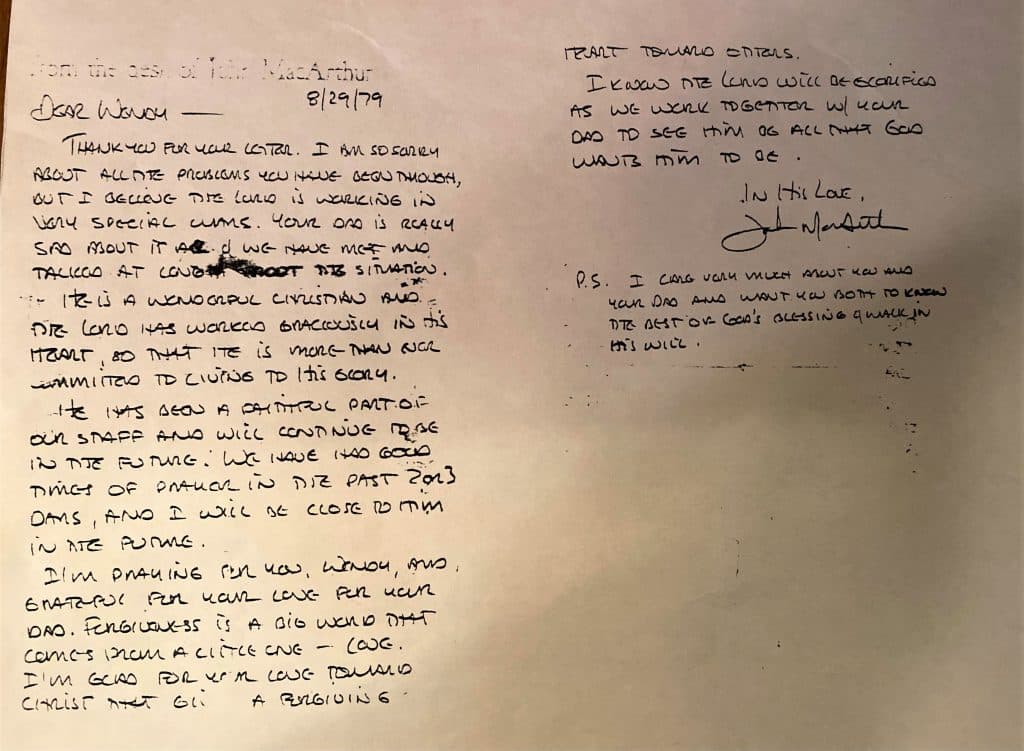 From the desk of John MacArthur
8/29/79
DEAR WENDY —
THANK YOU FOR YOUR LETTER. I AM SO SORRY
ABOUT ALL THE PROBLEMS YOU HAVE BEEN THOUGH,
BUT I BELIEVE THE LORD IS WORKING IN
VERY SPECIAL WAYS. YOUR DAD IS REALLY
SAD ABOUT IT WE HAVE MET AND
TALKED AT LENGTH ABOUT THE SITUATION.
HE IS A WONDERFUL CHRISTIAN AND
THE LORD HAS WORKED GRACIOUSLY IN HIS
HEART, SO THAT HE IS MORE THAN EVER
COMMITTED TO LIVING TO HIS GLORY.
HE HAS BEEN A FAITHFUL PART OF
OUR STAFF AND WILL CONTINUE TO BE
IN THE FUTURE. WE HAVE HAD GOOD
TIMES OF PRAYER IN THE PAST 2 OR 3
DAYS, AND I WILL BE CLOSE TO HIM
IN THE FUTURE.
I'M PRAYING FOR YOU, WENDY, AND
GRATEFUL FOR YOUR LOVE FOR YOUR
DAD. FORGIVENESS IS A BIG WORD THAT
COMES FROM A LITTLE ONE — LOVE.
I'M GLAD FOR YOUR LOVE TOWARD
CHRIST THAT A FORGIVING
HEART TOWARD OTHERS.
I KNOW THE LORD WILL BE GLORIFIED
AS WE WORK TOGETHER W/ YOUR
DAD TO SEE HIM BE ALL THAT GOD
WANTS HIM TO BE.
IN HIS LOVE,
John MacArthur
P.S. I CARE VERY MUCH ABOUT YOU AND
YOUR DAD AND WANT YOU BOTH TO KNOW
THE BEST OF GOD'S BLESSING & WALK IN
HIS WILL.